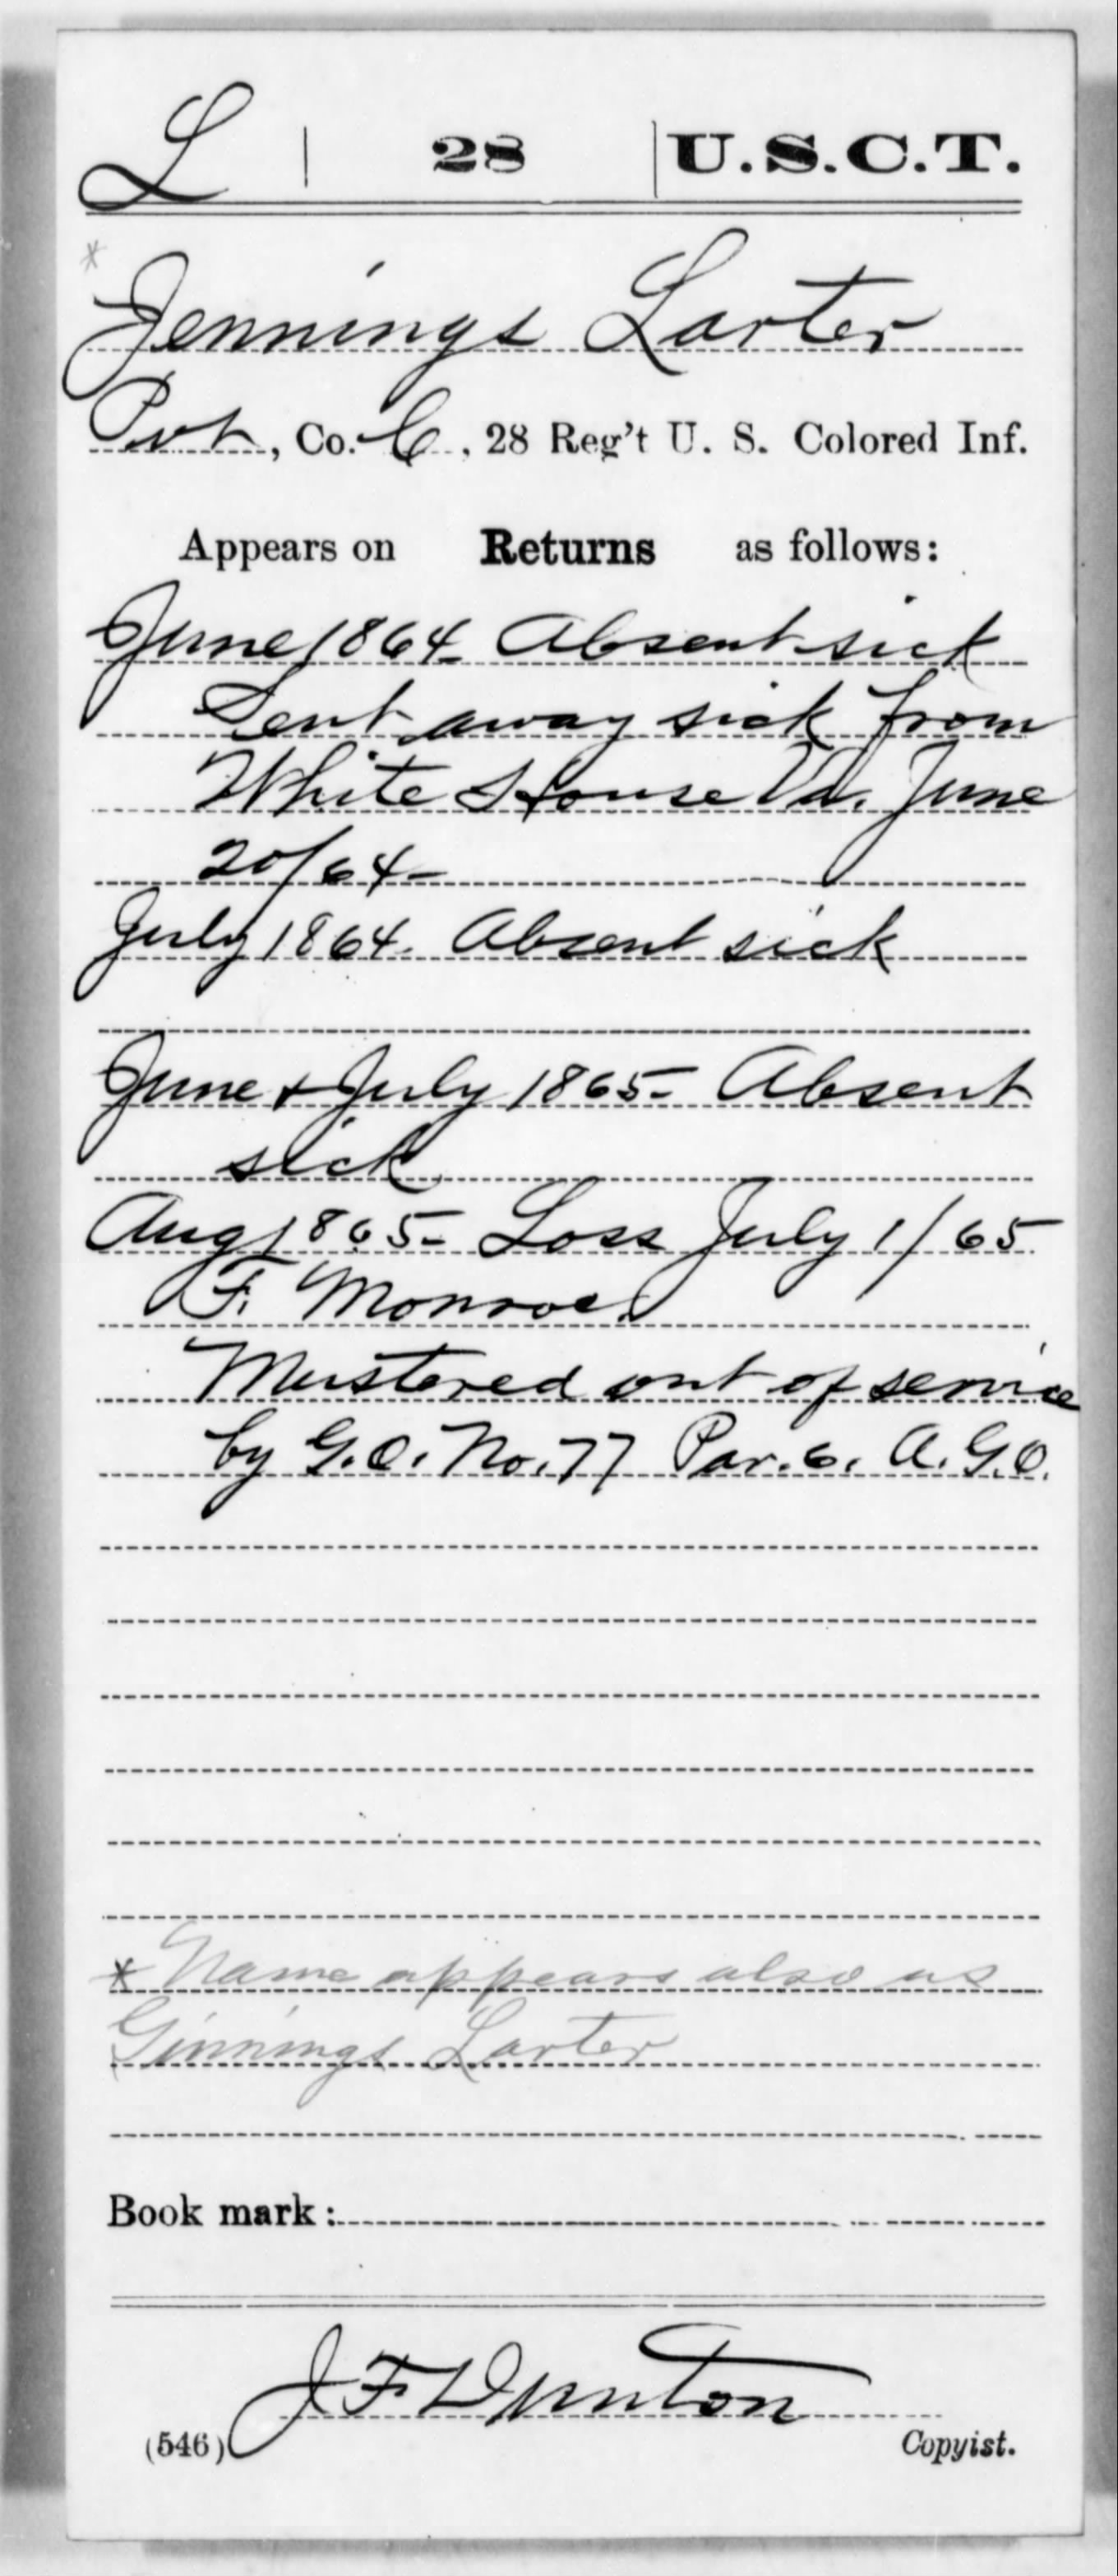 L | 28 | U.S.C.T.
* Jennings Larter
Pvt, Co. C, 28 Reg't U. S. Colored Inf.
Appears on Returns as follows:
June 1864 Absent sick
Sent away sick from
White House Va. June
20/64-
July 1864. Absent sick
June & July 1865- Absent
sick
Aug 1865- Loss July 1/65
F. Monroe
Mustered out of service
by G.O. No. 77 Par. 6. A.G.O.
* Name appears also as
Ginnings Larter
Book mark:
J F Dunton
(546) Copyist.